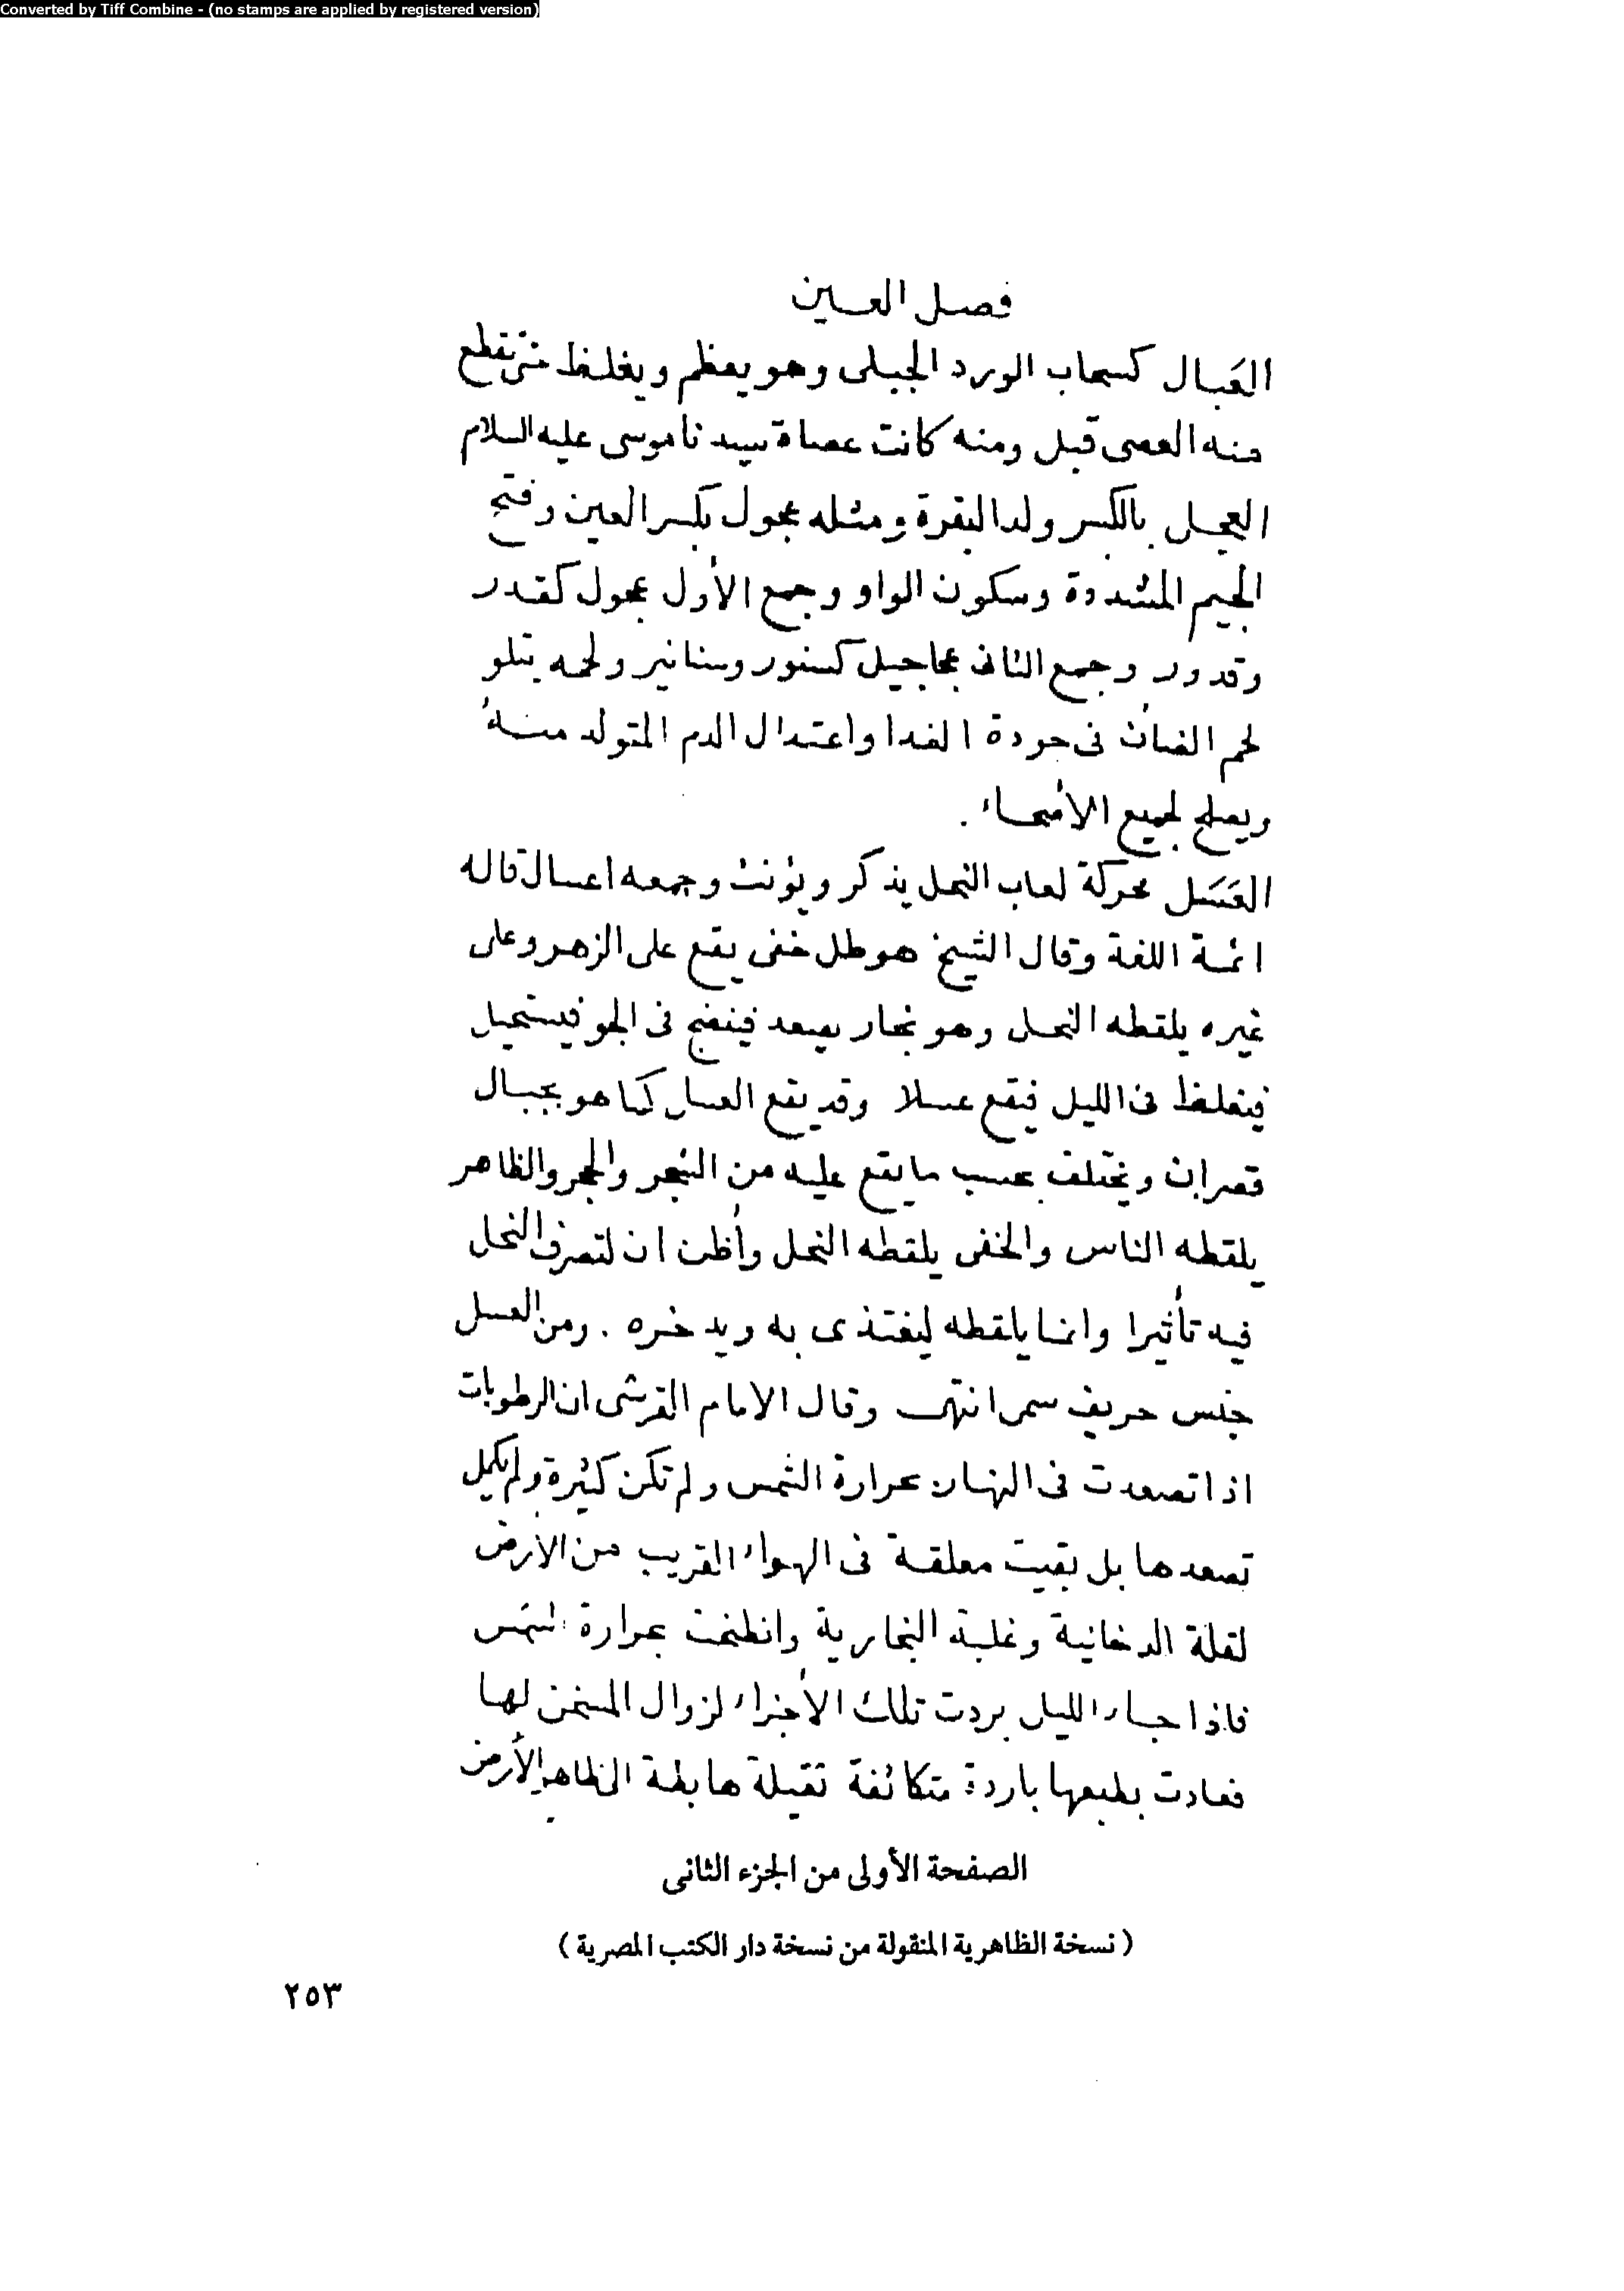 Converted by Tiff Combine - (no stamps are applied by registered version)
فصل العين
العَبال كسحاب الورد الجبلى وهو يعظم ويغلظ حتى تقطع
منه العصى قيل ومنه كانت عصاة سيدنا موسى عليه السلام
العجل بالكسر ولد البقرة ومثله عجول بكسر العين وفتح
الجيم المشددة وسكون الواو وجمع الأول عجول كقدر
وقدور وجمع الثانى عجاجيل كسنور وسنانير ولحمه يتلو
لحم الضأن فى جودة الغدا واعتدال الدم المتولد منه
ويصلح لجميع الأصحاء .
العَسَل محركة لعاب النحل يذكر ويؤنث وجمعه اعسال قاله
ائمة اللغة وقال الشيخ هو طل خفى يقع على الزهر وعلى
غيره يلقطه النحل وهو بخار يصعد فينضج فى الجو فيستحيل
فيغلظ فى الليل فيقع عسلا وقد يقع العسل كما هو بجبال
قصران ويختلف بحسب ما يقع عليه من الشجر والحجر والظاهر
يلقطه الناس والخفى يلقطه النحل وأظن ان لتصرف النحل
فيه تأثيرا وانما يلقطه ليغتذى به ويدخره . ومن العسل
جنس حريف سمى انتهى وقال الامام القرشى ان الرطوبات
اذا تصعدت فى النهار بحرارة الشمس ولم تكن كثيرة ولم يكمل
تصعدها بل بقيت معلقة فى الهواء القريب من الأرض
لقلة الدخانية وغلبة البخارية وانطبخت بحرارة الشمس
فاذا جاء الليل بردت تلك الأجزاء لزوال المسخن لها
فعادت بطبعها باردة متكاثفة ثقيلة هابطة الى ظاهر الأرض
الصفحة الأولى من الجزء الثانى
( نسخة الظاهرية المنقولة من نسخة دار الكتب المصرية )
٢٥٣